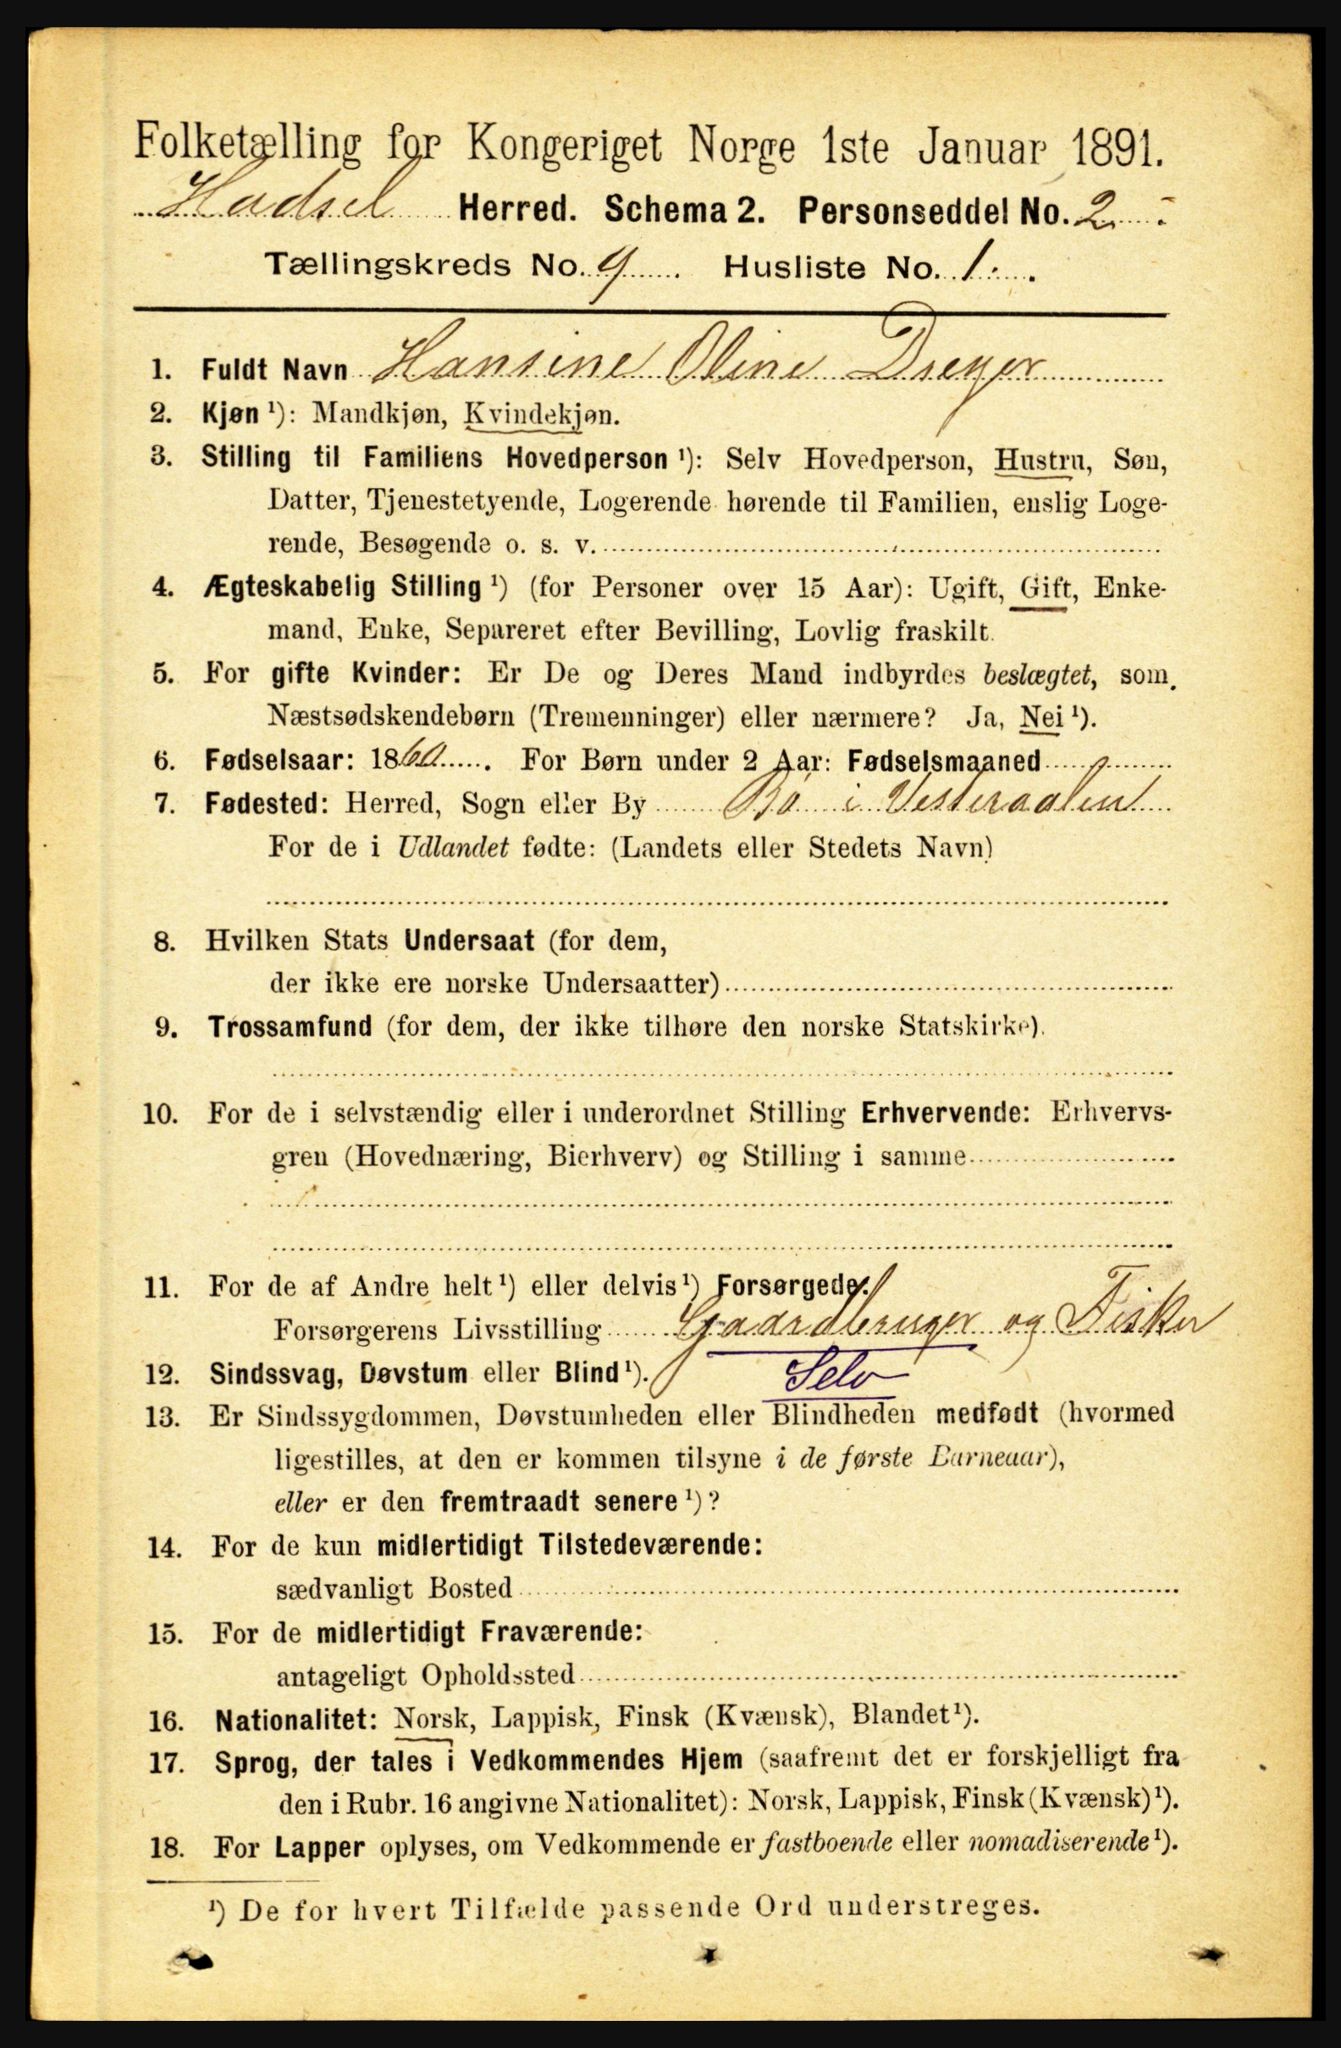 Folketælling for Kongeriget Norge 1ste Januar 1891.
Hadsel Herred. Schema 2. Personseddel No. 2
Tællingskreds No. 9. Husliste No. 1.
1. Fuldt Navn Hansine Oline Dreyer
2. Kjøn ¹): Mandkjøn, Kvindekjøn.
3. Stilling til Familiens Hovedperson ¹): Selv Hovedperson, Hustru, Søn,
Datter, Tjenestetyende, Logerende hørende til Familien, enslig Loge-
rende, Besøgende o. s. v.
4. Ægteskabelig Stilling ¹) (for Personer over 15 Aar): Ugift, Gift, Enke-
mand, Enke, Separeret efter Bevilling, Lovlig fraskilt.
5. For gifte Kvinder: Er De og Deres Mand indbyrdes beslægtet, som
Næstsødskendebørn (Tremenninger) eller nærmere? Ja, Nei ¹).
6. Fødselsaar: 1860. For Børn under 2 Aar: Fødselsmaaned
7. Fødested: Herred, Sogn eller By Bø i Vesteraalen
For de i Udlandet fødte: (Landets eller Stedets Navn)
8. Hvilken Stats Undersaat (for dem,
der ikke ere norske Undersaatter)
9. Trossamfund (for dem, der ikke tilhøre den norske Statskirke).
10. For de i selvstændig eller i underordnet Stilling Erhvervende: Erhvervs-
gren (Hovednæring, Bierhverv) og Stilling i samme
11. For de af Andre helt ¹) eller delvis ¹) Forsørgede:
Forsørgerens Livsstilling Gaardbruger og Fisker
12. Sindssvag, Døvstum eller Blind ¹). Selv
13. Er Sindssygdommen, Døvstumheden eller Blindheden medfødt (hvormed
ligestilles, at den er kommen tilsyne i de første Barneaar),
eller er den fremtraadt senere ¹)?
14. For de kun midlertidigt Tilstedeværende:
sædvanligt Bosted
15. For de midlertidigt Fraværende:
antageligt Opholdssted
16. Nationalitet: Norsk, Lappisk, Finsk (Kvænsk), Blandet ¹).
17. Sprog, der tales i Vedkommendes Hjem (saafremt det er forskjelligt fra
den i Rubr. 16 angivne Nationalitet): Norsk, Lappisk, Finsk (Kvænsk) ¹).
18. For Lapper oplyses, om Vedkommende er fastboende eller nomadiserende ¹).
¹) De for hvert Tilfælde passende Ord understreges.